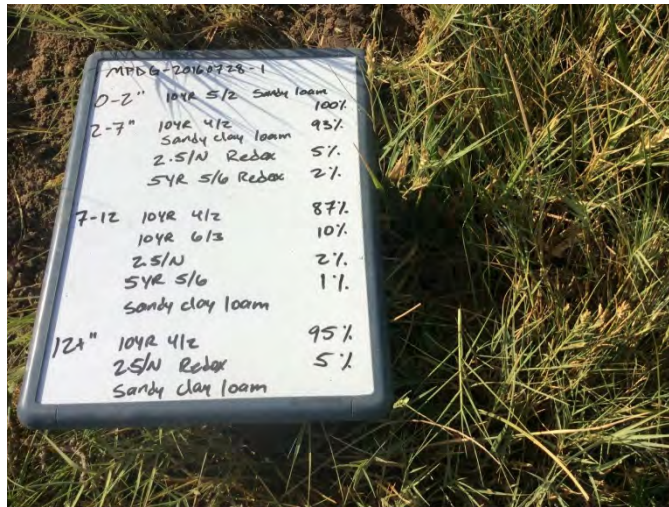 MPDG-20160728-1
0-2" 10YR 5/2 Sandy loam
100%
2-7" 10YR 4/2 93%
Sandy clay loam
2.5/N Redox 5%
5YR 5/6 Redox 2%
7-12 10YR 4/2 87%
10YR 6/3 10%
2.5/N 2%
5YR 5/6 1%
Sandy clay loam
12+" 10YR 4/2 95%
2.5/N Redox 5%
Sandy clay loam